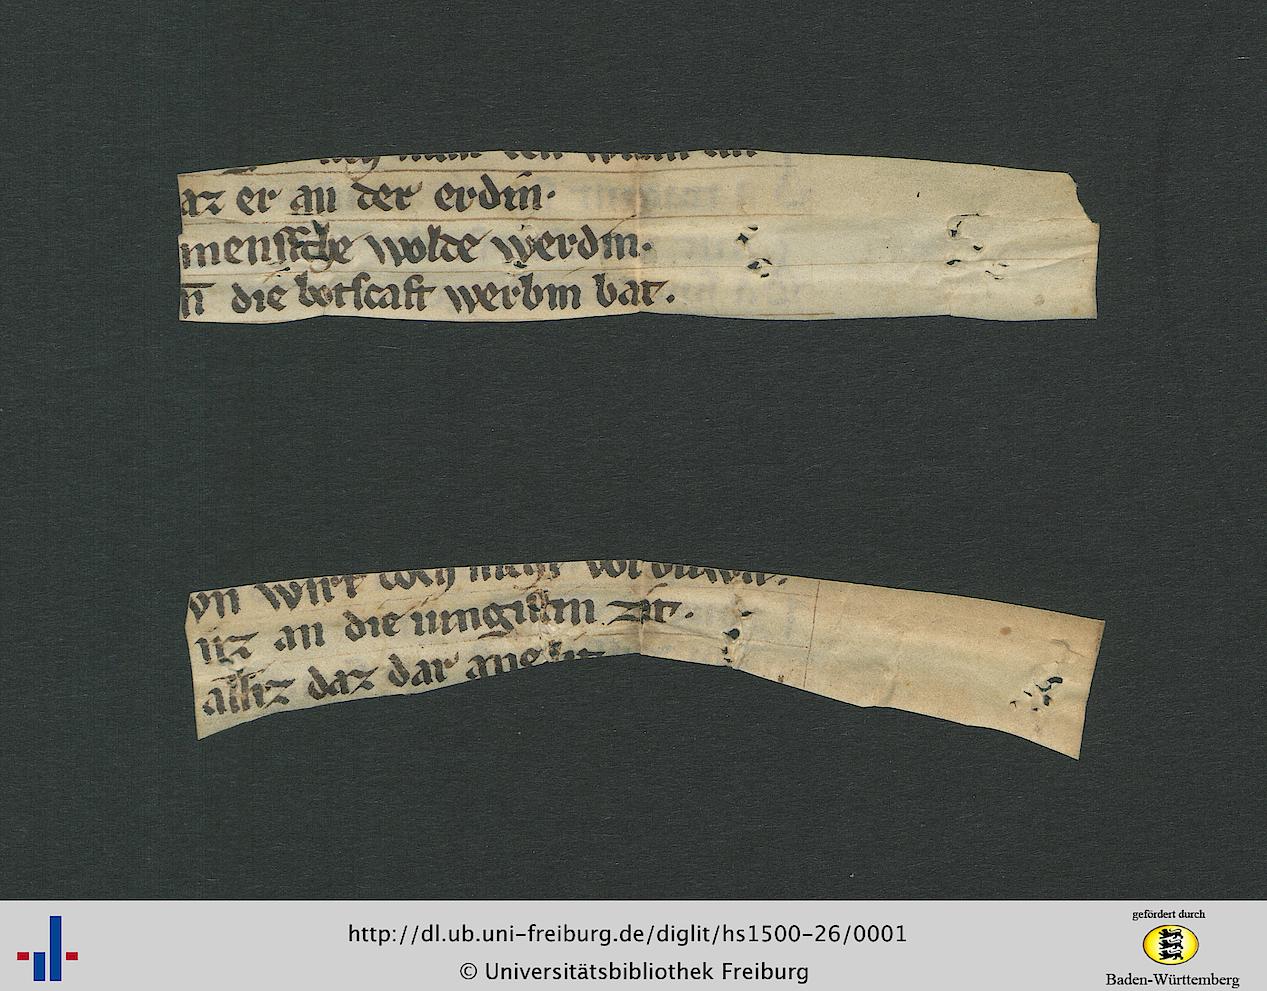 az er an der erdin·
mensche wolde werdin·
n̄ die botscaft werbin bat.
vn̄ wirt doch nicht
nz an die iungistin zit.
alliz daz dar ane
http://dl.ub.uni-freiburg.de/diglit/hs1500-26/0001
© Universitätsbibliothek Freiburg
gefördert durch
Baden-Württemberg